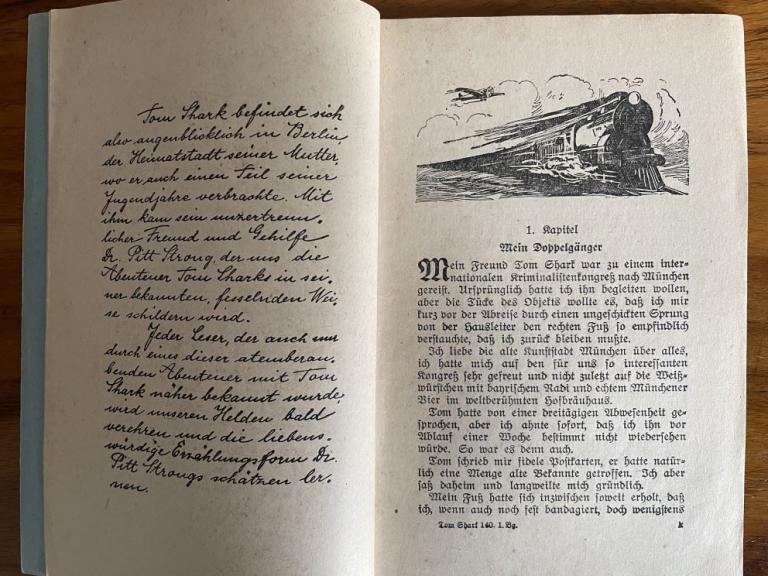 Tom Shark befindet sich
also augenblicklich in Berlin,
der Heimatstadt seiner Mutter,
wo er auch einen Teil seiner
Jugendjahre verbrachte. Mit
ihm kam sein unzertrenn-
licher Freund und Gehilfe
Dr. Pitt Strong, der uns die
Abenteuer Tom Sharks in sei-
ner bekannten, fesselnden Wei-
se schildern wird.
Jeder Leser, der auch nur
durch eines dieser atemberau-
benden Abenteuer mit Tom
Shark näher bekannt wurde,
wird unseren Helden bald
verehren und die liebens-
würdige Erzählungsform Dr.
Pitt Strongs schätzen ler-
nen.
1. Kapitel
Mein Doppelgänger
Mein Freund Tom Shark war zu einem inter-
nationalen Kriminalistenkongreß nach München
gereist. Ursprünglich hatte ich ihn begleiten wollen,
aber die Tücke des Objekts wollte es, daß ich mir
kurz vor der Abreise durch einen ungeschickten Sprung
von der Hausleiter den rechten Fuß so empfindlich
verstauchte, daß ich zurück bleiben mußte.
Ich liebe die alte Kunststadt München über alles,
ich hatte mich auf den für uns so interessanten
Kongreß sehr gefreut und nicht zuletzt auf die Weiß-
würstchen mit bayrischem Radi und echtem Münchener
Bier im weltberühmten Hofbräuhaus.
Tom hatte von einer dreitägigen Abwesenheit ge-
sprochen, aber ich ahnte sofort, daß ich ihn vor
Ablauf einer Woche bestimmt nicht wiedersehen
würde. So war es denn auch.
Tom schrieb mir fidele Postkarten, er hatte natür-
lich eine Menge alte Bekannte getroffen. Ich aber
saß daheim und langweilte mich gründlich.
Mein Fuß hatte sich inzwischen soweit erholt, daß
ich, wenn auch noch fest bandagiert, doch wenigstens
Tom Shark 140. 1. Bg. K